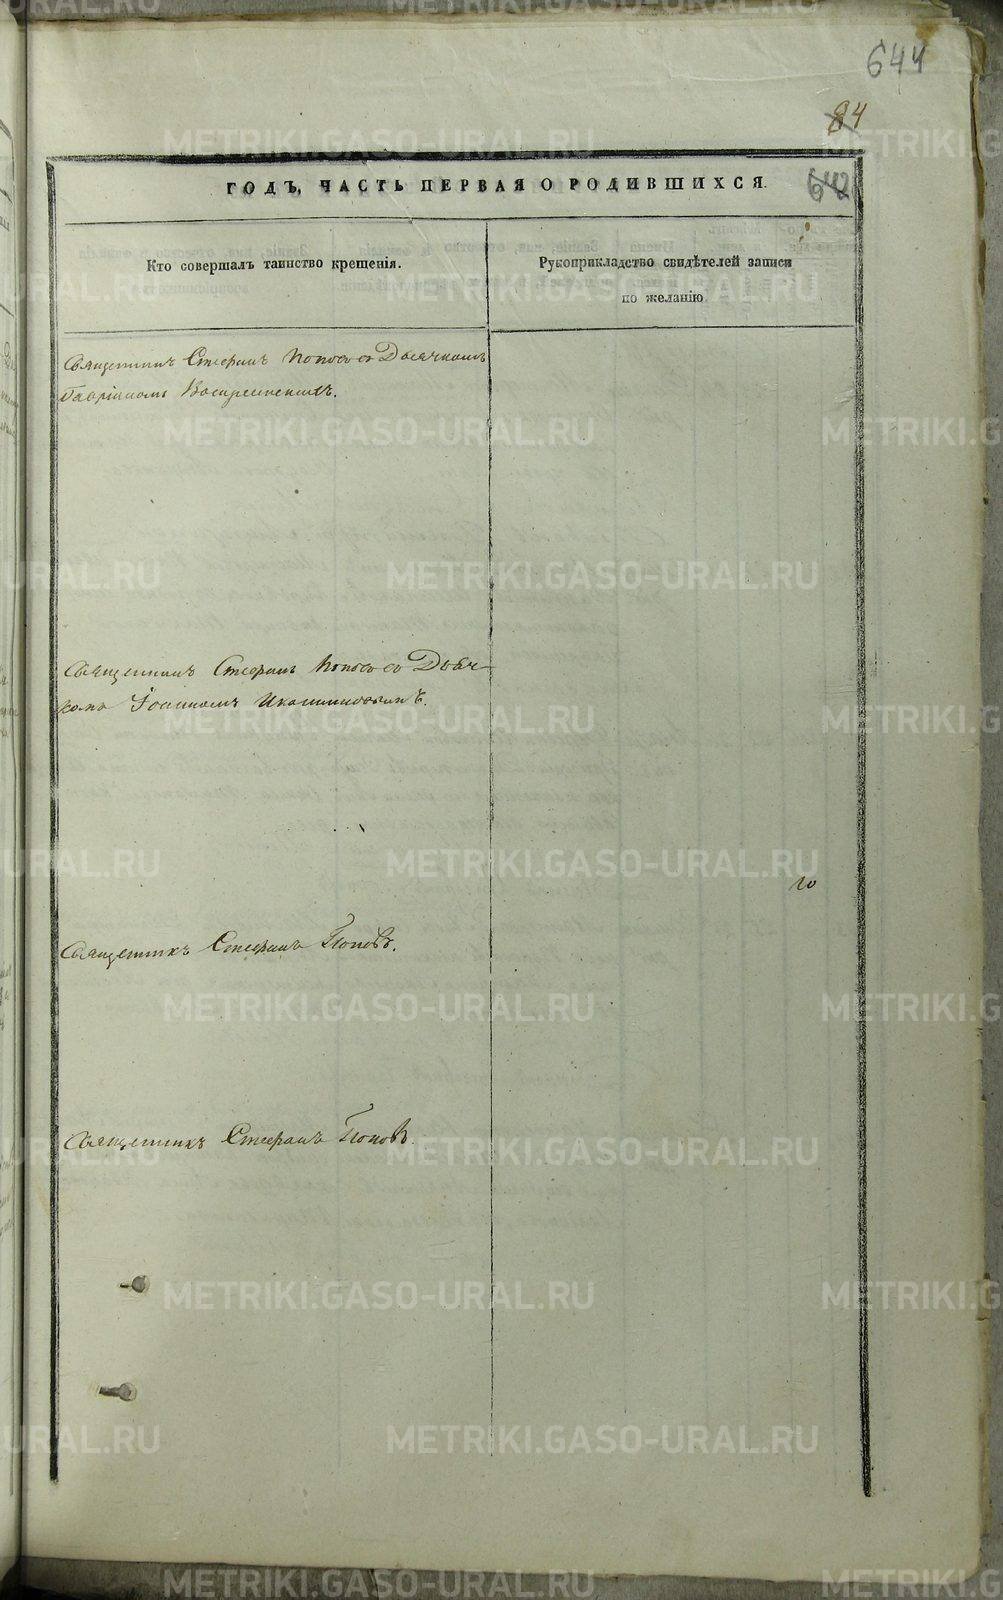 644
84
642
ГОДЪ, ЧАСТЬ ПЕРВАЯ О РОДИВШИХСЯ.
Кто совершалъ таинство крещенія.
Рукоприкладство свидѣтелей записи
по желанію
Священникъ Стефанъ Поповъ съ Дьячкомъ
Гавріиломъ Воскресенскимъ.
Священникъ Стефанъ Поповъ съ Дьяч-
комъ Іоанномъ
Священникъ Стефанъ Поповъ.
Священникъ Стефанъ Поповъ.
METRIKI.GASO-URAL.RU